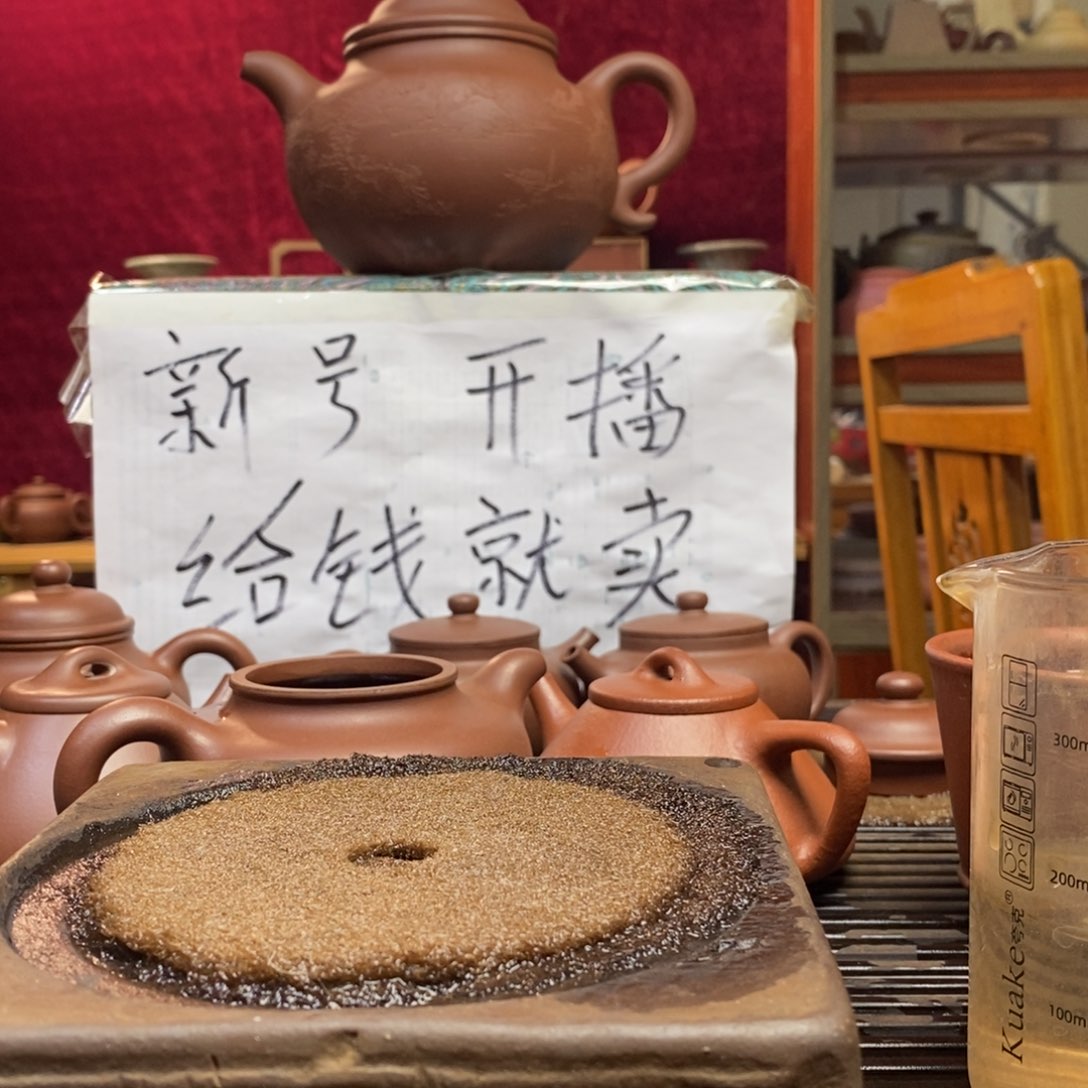 新号 开播
给钱就卖
300m
200m
100m
Kuake夸克®